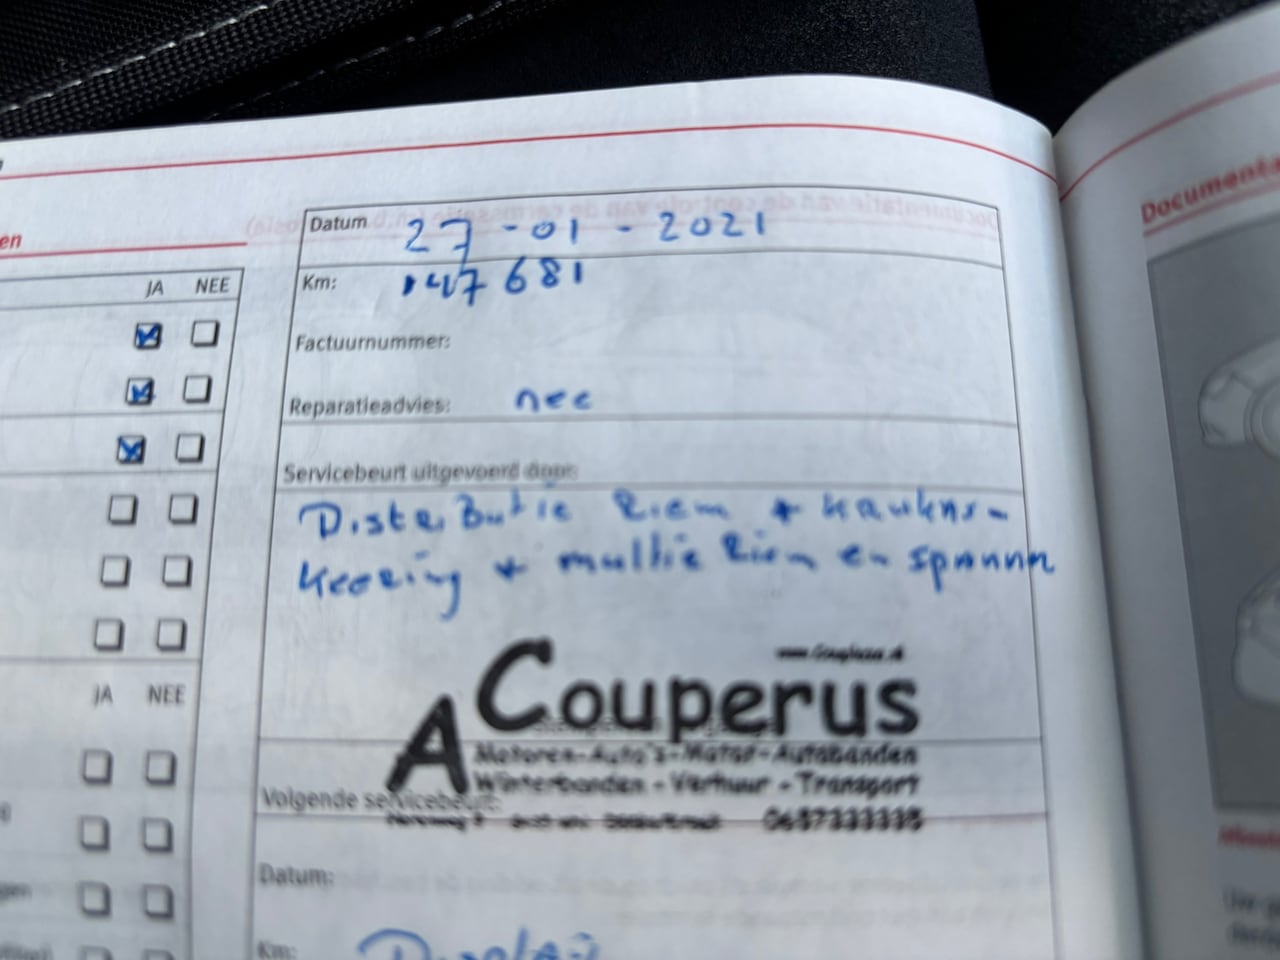 en
JA NEE
Datum 27-01-2021
Km: 147681
Factuurnummer:
Reparatieadvies: nee
Servicebeurt uitgevoerd door:
Distributie Riem +
Keering + multie Riem en spannn
A Couperus
Motoren-Auto's-Motor-Autobanden
Winterbanden - Verhuur - Transport
0657333335
JA NEE
Volgende servicebeurt:
Datum:
Km: Display
Documenta